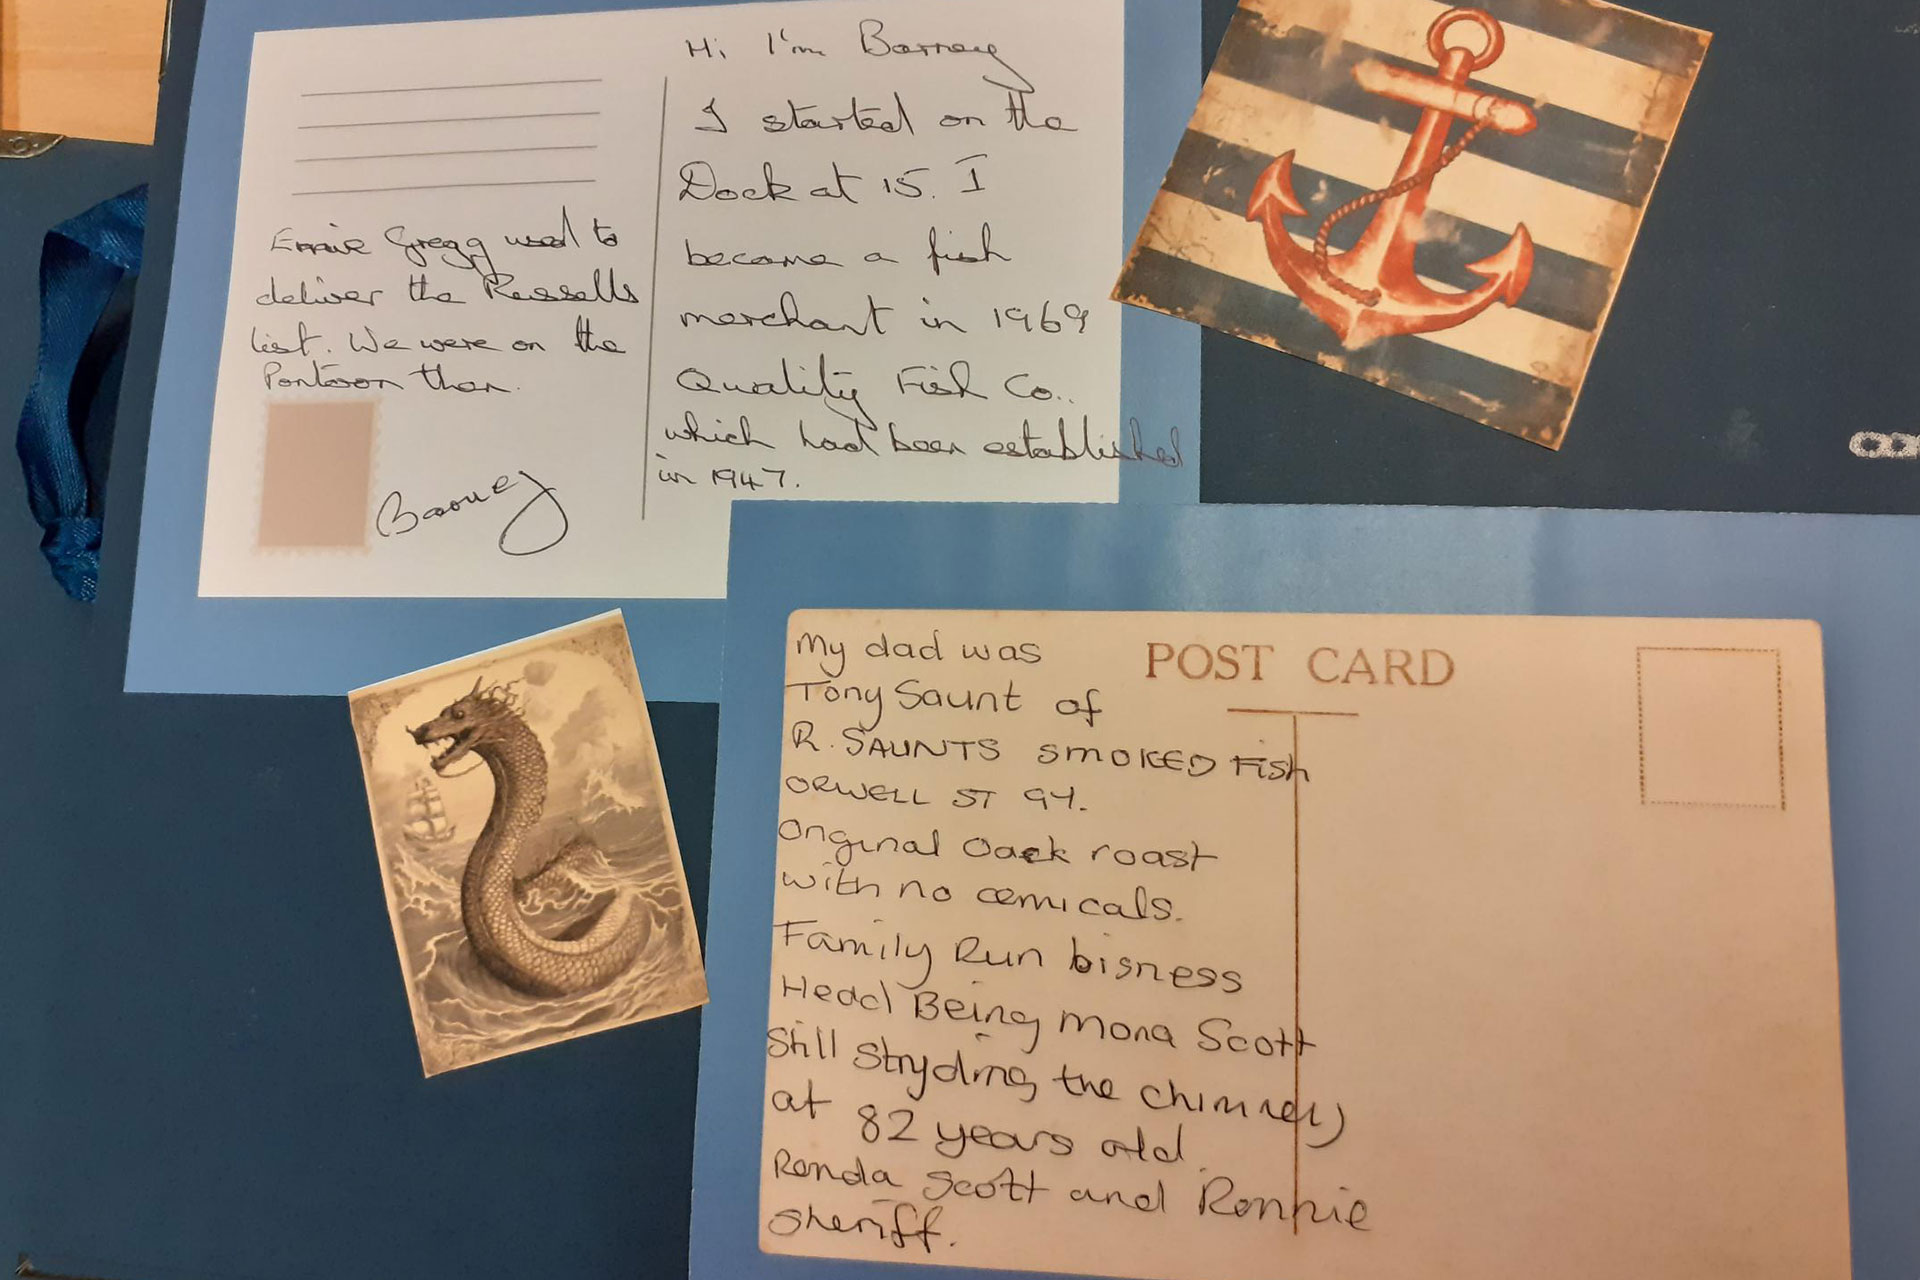 Hi I'm Barney
I started on the
Dock at 15. I
became a fish
merchant in 1969
Quality Fish Co..
which had been established
in 1947.
Ernie Gregg used to
deliver the Russells
list. We were on the
Pontoon then.
Barney
POST CARD
My dad was
Tony Saunt of
R. SAUNTS SMOKED Fish
ORWELL ST GY.
Original Oack roast
with no cemicals.
Family Run bisness
Head Being Mona Scott
Still stryding the chimney
at 82 years old.
Ronda Scott and Ronnie
Sheriff.